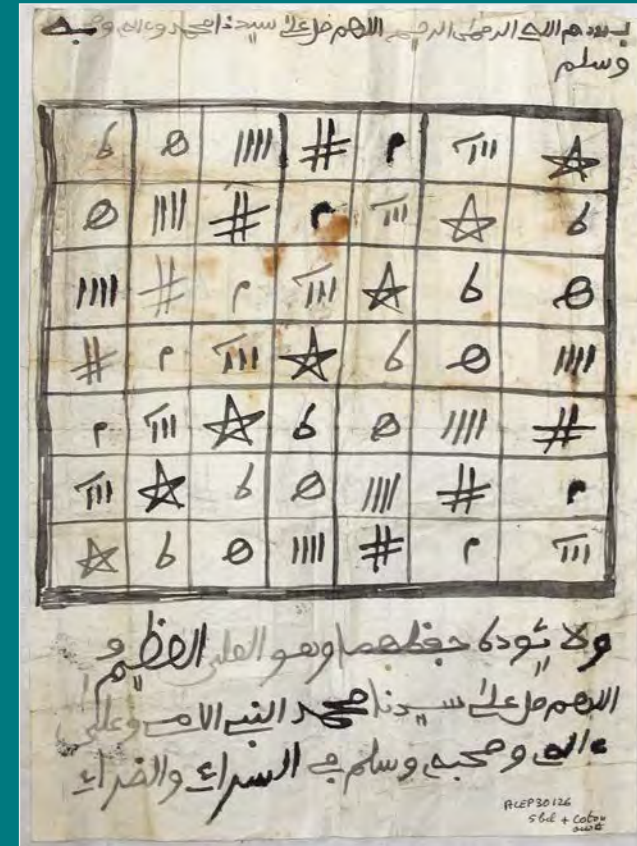 بسم الله الرحمن الرحيم اللهم صل على سيدنا محمد وءاله وصحبه
وسلم
ولا يئوده حفظهما وهو العلي العظيم
اللهم صل على سيدنا محمد النبي الامي وعلى
ءاله وصحبه وسلم في السراء والضراء
ACEP30126
+ coton